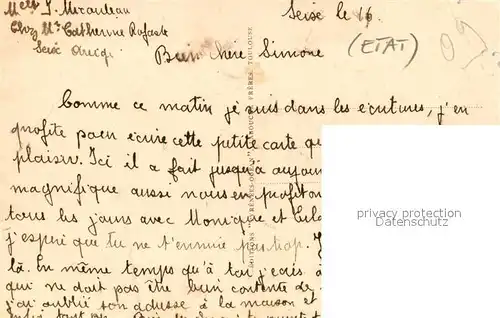 Melle J. Miraudeau
Chez Me Catherine Rofaste
Seix Ariège
Seix le 16
(ETAT)
09
Bien chère Simone
Comme ce matin je suis dans les écritures, j'en
profite pour écrire cette petite carte qu
plaisir. Ici il a fait jusqu'à aujour
magnifique aussi nous en profiton
tous les jours avec Monique et
j'espère que tu ne t'ennuie pas trop. J
là. En même temps qu'à toi j'écris à
qui ne doit pas être bien contente de
j'ai oublié son adresse à la maison et
EDITIONS "PYRÉNÉES-OCÉAN" LABOUCHE FRÈRES, TOULOUSE
privacy protection
Datenschutz